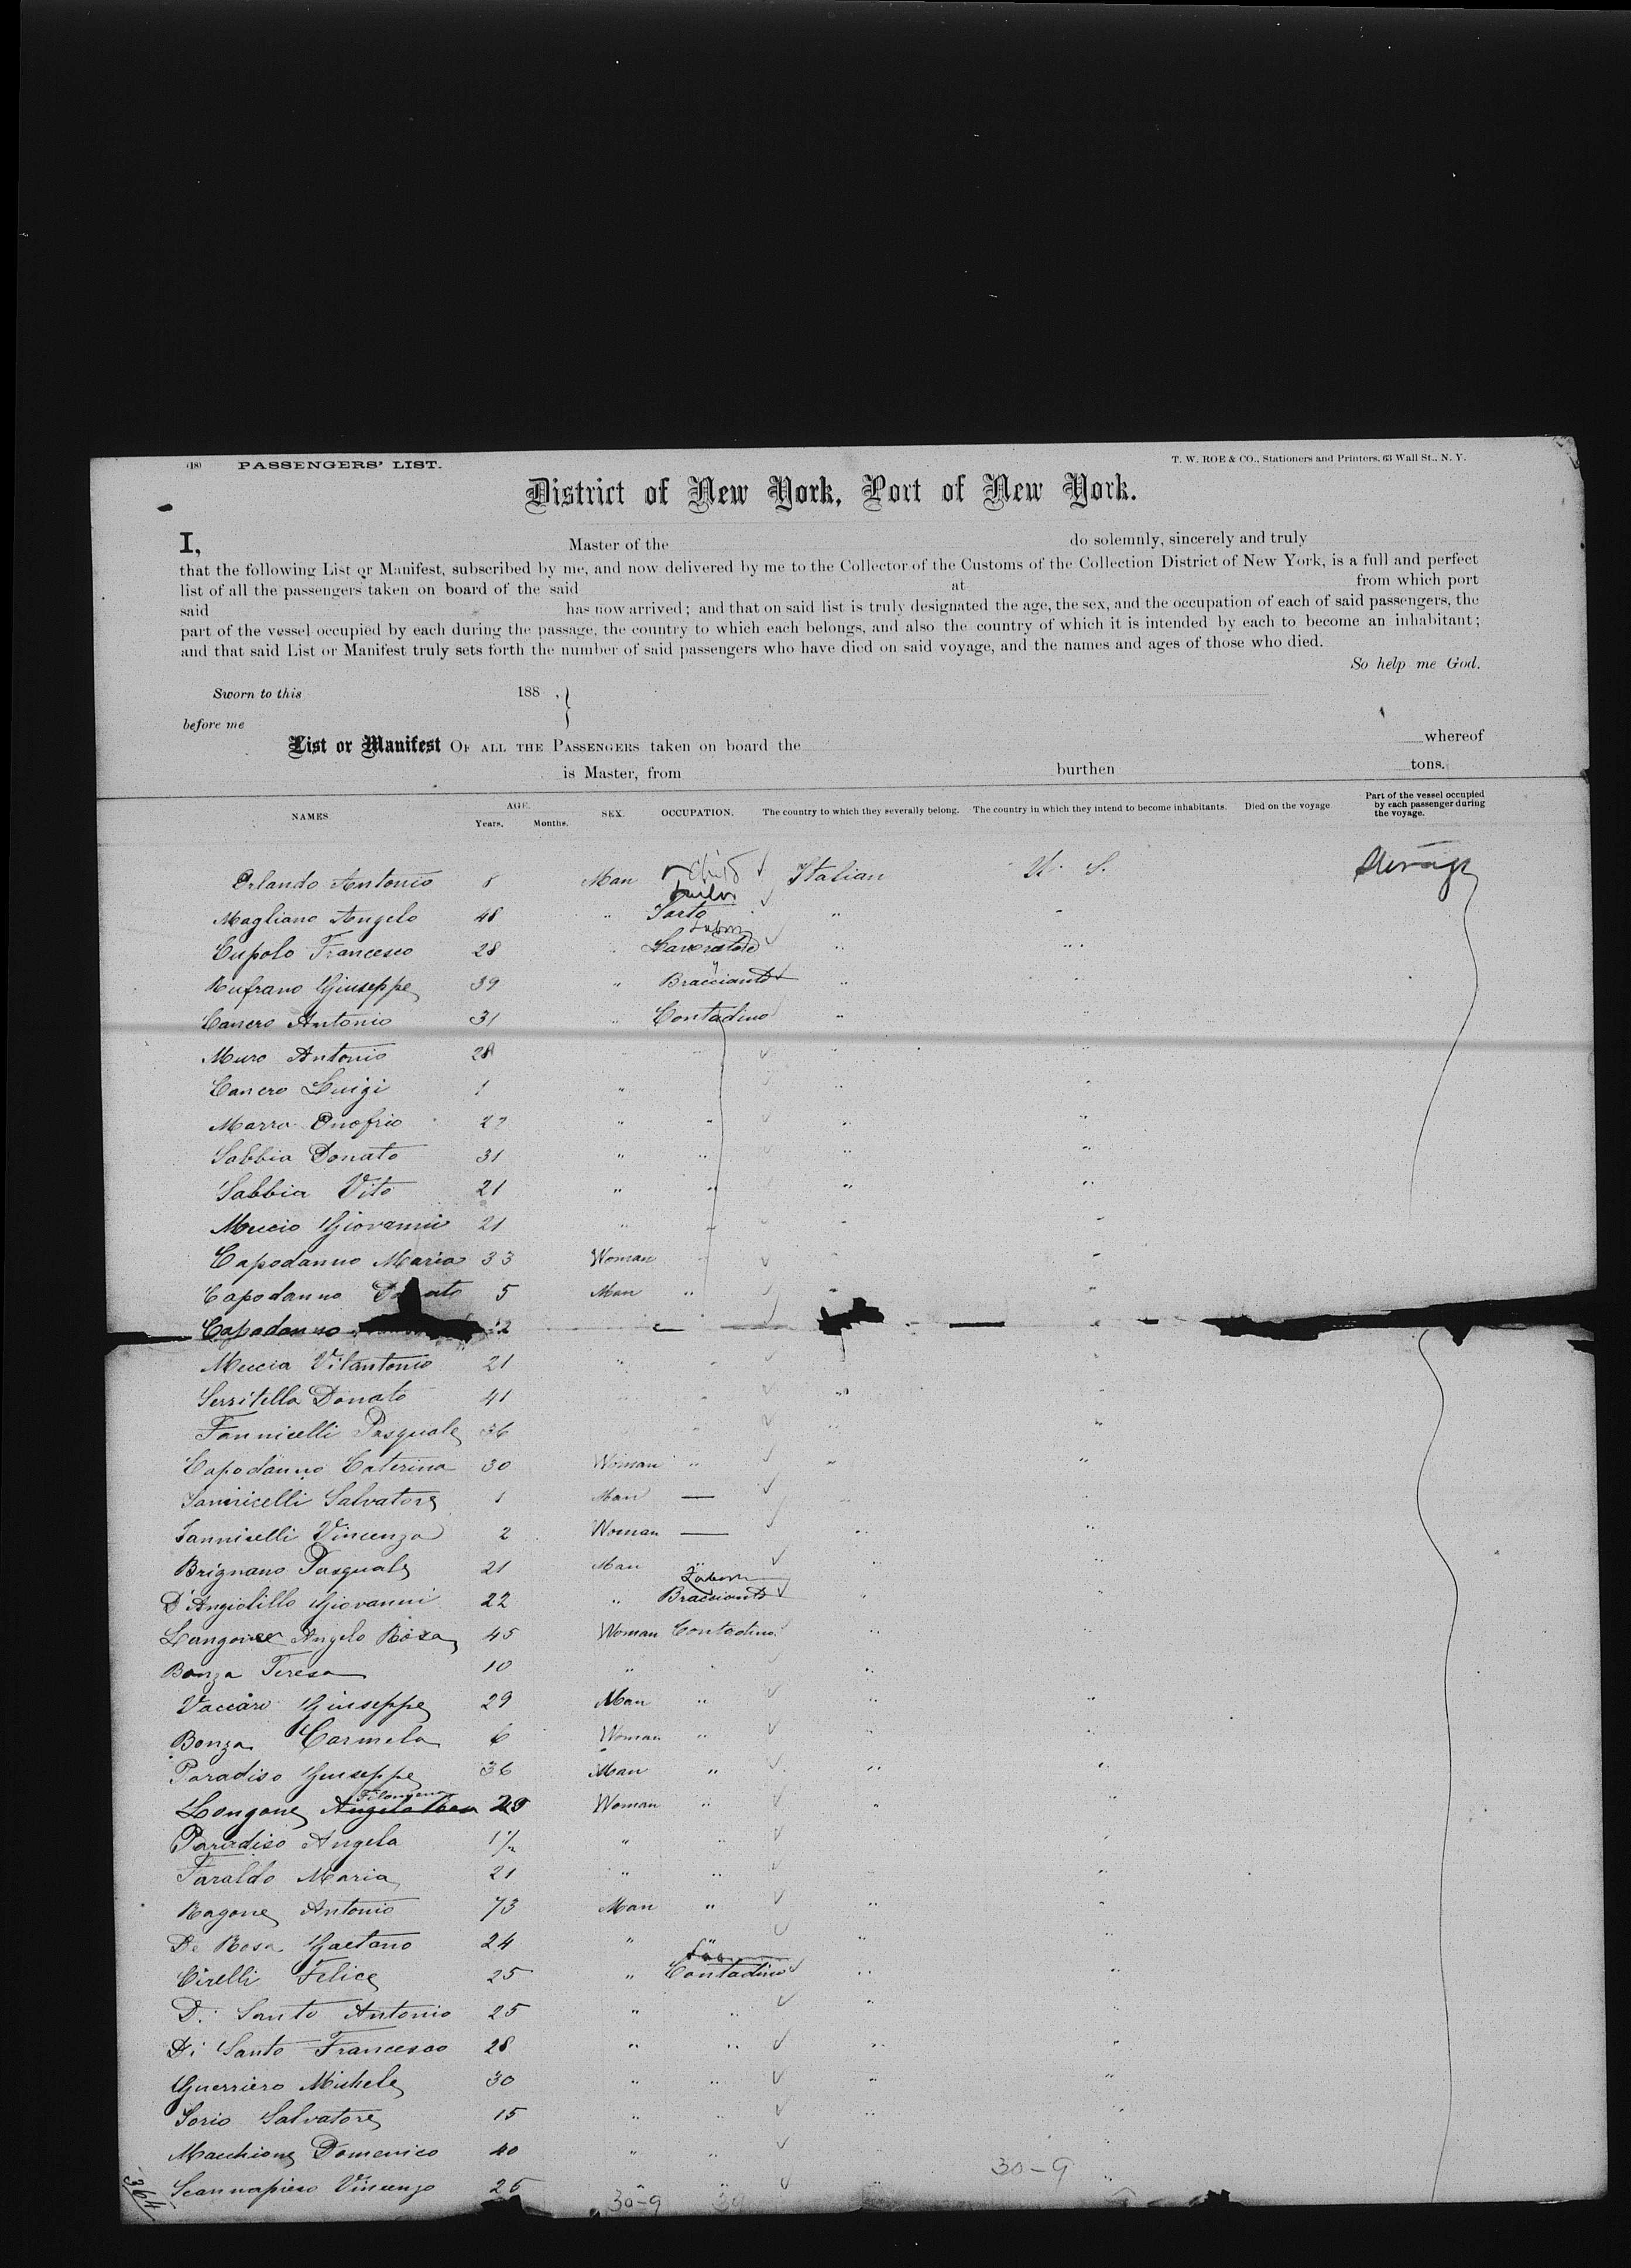 (18) PASSENGERS' LIST. T. W. ROE & CO., Stationers and Printers, 63 Wall St., N. Y.
District of New York, Port of New York.
I, Master of the do solemnly, sincerely and truly
that the following List or Manifest, subscribed by me, and now delivered by me to the Collector of the Customs of the Collection District of New York, is a full and perfect
list of all the passengers taken on board of the said at from which port
said has now arrived; and that on said list is truly designated the age, the sex, and the occupation of each of said passengers, the
part of the vessel occupied by each during the passage, the country to which each belongs, and also the country of which it is intended by each to become an inhabitant;
and that said List or Manifest truly sets forth the number of said passengers who have died on said voyage, and the names and ages of those who died.
So help me God.
Sworn to this 188 . }
before me
List or Manifest OF ALL THE PASSENGERS taken on board the whereof
is Master, from burthen tons.
NAMES. AGE. Years. Months. SEX. OCCUPATION. The country to which they severally belong. The country in which they intend to become inhabitants. Died on the voyage Part of the vessel occupied by each passenger during the voyage.
Orlando Antonio 8 Man Child ✓ Italian U. S. Steerage
Tailor
Magliano Angelo 48 " Sarto ✓ " "
Labor
Cupolo Francesco 28 " Lavoratore ✓ " "
Rufrano Giuseppe 39 " Bracciante ✓ " "
Canero Antonio 31 " Contadino ✓ " "
Muro Antonio 28 " " ✓ " "
Canero Luigi 1 " ✓ " "
Marra Onofrio 22 " " ✓ " "
Sabbia Donato 31 " " ✓ " "
Sabbia Vito 21 " " ✓ " "
Muccio Giovanni 21 " " ✓ " "
Capodanno Maria 33 Woman " ✓ " "
Capodanno 5 Man " ✓ " "
Capodanno
Muccia Vitantonio 21 " " ✓ " "
Serritella Donato 41 " " ✓ " "
Fannicelli Pasquale 36 " ✓ " "
Capodanno Caterina 30 Woman " ✓ " "
Iannicelli Salvatore 1 Man — ✓ " "
Iannicelli Vincenza 2 Woman — ✓ " "
Brignano Pasquale 21 Man " ✓ " "
Labor
D'Angiolillo Giovanni 22 " Bracciante ✓ " "
Langone Angelo Rosa 45 Woman Contadino ✓ " "
Bonza Teresa 10 " " ✓ " "
Vaccaro Giuseppe 29 Man " ✓ " "
Bonza Carmela 6 Woman " ✓ " "
Paradiso Giuseppe 36 Man " ✓ " "
Filomena
Longone Angela Rosa 29 Woman " ✓ " "
Paradiso Angela " " ✓ " "
Faraldo Maria 21 " " ✓ " "
Ragone Antonio 73 Man " ✓ " "
De Rosa Gaetano 24 " " ✓ " "
Cirelli Felice 25 " Contadino ✓ " "
Di Santo Antonio 25 " " ✓ " "
Di Santo Francesco 28 " " ✓ " "
Guerriero Michele 30 " " ✓ " "
Iorio Salvatore 15 " " ✓ " "
Macchione Domenico 40 " " ✓ " "
Scannapieco Vincenzo 26 " ✓ " "
30-9
364 30-9 39